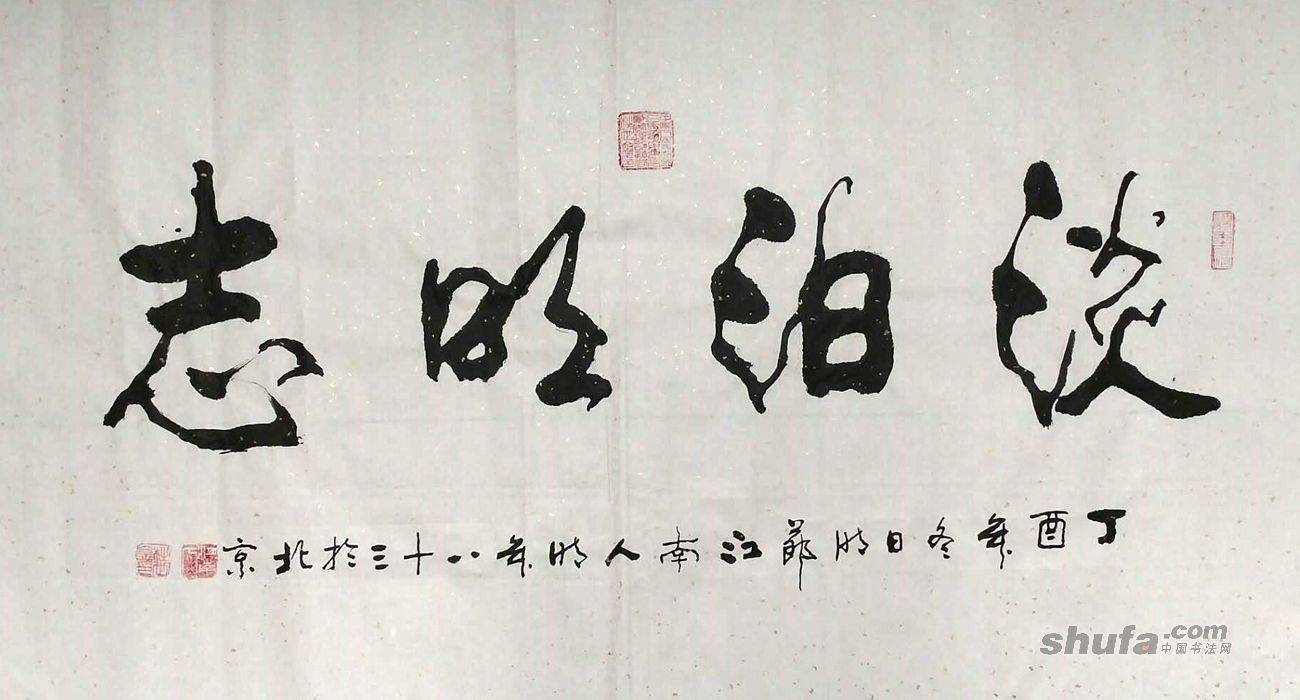 淡泊明志
丁酉年冬日时节江南人时年八十三於北京
shufa.com
中国书法网